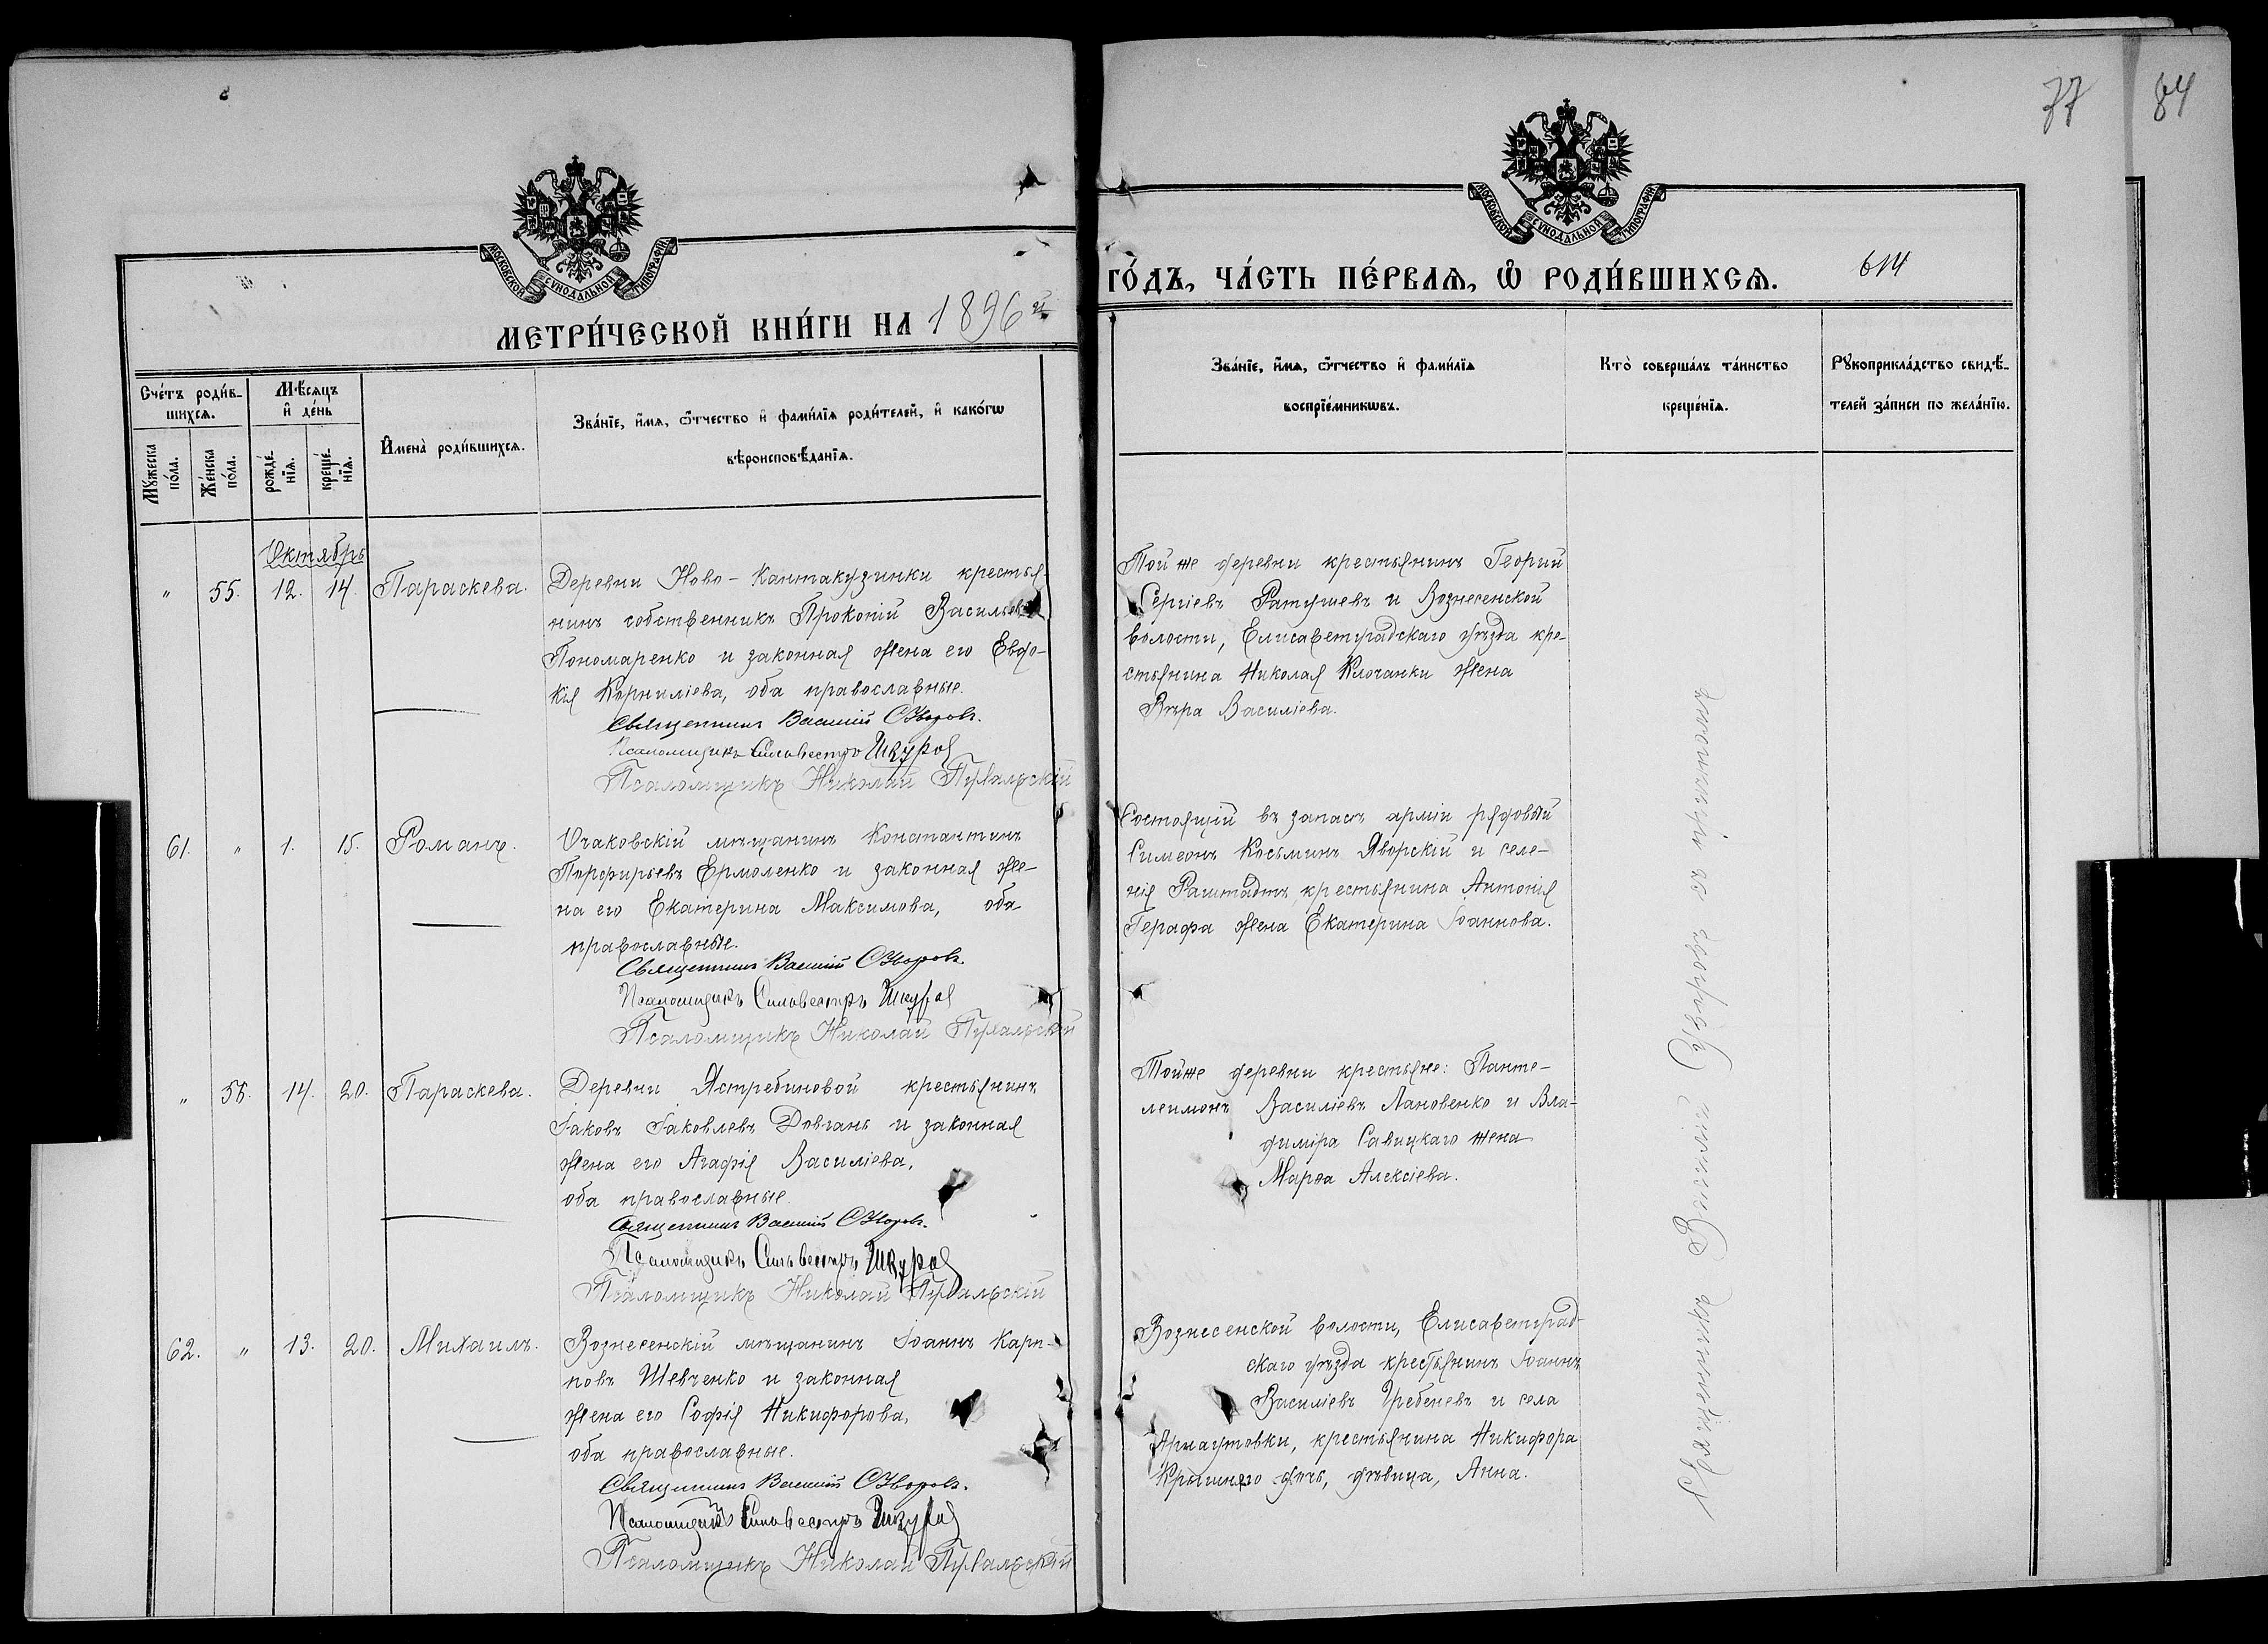 77
84
МОСКОВСКОЙ СУНОДАЛЬНОЙ ТИПОГРАФІИ
МОСКОВСКОЙ СУНОДАЛЬНОЙ ТИПОГРАФІИ
МЕТРИ́ЧЕСКОЙ КНИ́ГИ НА 1896 й
ГО́ДЪ, ЧА́СТЬ ПЕ́РВАѦ, Ѡ҆ РОДИ́ВШИХСѦ.
614
Сче́тъ роди́в-
шихсѧ.
Мѣ́сяцъ
и҆ де́нь
Мꙋ́жеска по́ла.
Же́нска по́ла.
рожде́-
нїѧ.
креще́-
нїѧ.
И҆мена̀ роди́вшихсѧ.
Зва́нїе, и҆́мѧ, ѻ҆́тчество и҆ фами́лїѧ роди́телей, и҆ како́гѡ
вѣроисповѣ́данїѧ.
Зва́нїе, и҆́мѧ, ѻ҆́тчество и҆ фами́лїѧ
воспрїе́мникѡвъ.
Кто̀ соверша́лъ та́инство
креще́нїѧ.
Рꙋкоприкла́дство свидѣ́-
телей за́писи по жела́нїю.
Октябрь
" 55. 12. 14. Параскева.
Деревни Ново-Кантакузинки крестья-
нинъ собственникъ Прокопій Васильевъ
Пономаренко и законная жена его Евдо-
кія Корниліева, оба православные.
Священникъ Василій
Псаломщикъ Сильвестръ Шкура
Псаломщикъ Николай
Той же деревни крестьянинъ Георгій
Сергіевъ Ратушевъ и Вознесенской
волости, Елисаветградскаго уѣзда кре-
стьянина Николая Клочанки жена
Вѣра Василіева.
61. " 1. 15. Романъ.
Очаковскій мѣщанинъ Константинъ
Порфирьевъ Ермоленко и законная же-
на его Екатерина Максимова, оба
православные.
Священникъ Василій
Псаломщикъ Сильвестръ Шкура
Псаломщикъ Николай
Состоящій въ запасѣ арміи рядовый
Симеонъ Косьминъ Яворскій и селе-
нія Раштадтъ, крестьянина Антонія
Герафа жена Екатерина Іоаннова.
" 56. 14. 20. Параскева.
Деревни Ястребиновой крестьянинъ
Іаковъ Іаковлевъ Довгань и законная
жена его Агафія Василіева,
оба православные.
Священникъ Василій
Псаломщикъ Сильвестръ Шкура
Псаломщикъ Николай
Тойже деревни крестьяне: Панте-
леимонъ Василіевъ Лановенко и Вла-
диміра Савицкаго жена
Марѳа Алексіева.
62. " 13. 20. Михаилъ.
Вознесенскій мѣщанинъ Іоаннъ Кар-
повъ Шевченко и законная
жена его Софія Никифорова,
оба православные.
Священникъ Василій
Псаломщикъ Сильвестръ Шкура
Псаломщикъ Николай
Вознесенской волости, Елисаветград-
скаго уѣзда крестьянинъ Іоаннъ
Василіевъ Гребеневъ и села
Арнаутовки, крестьянина Никифора
дочь, дѣвица, Анна.
Священникъ Василій съ псаломщикомъ